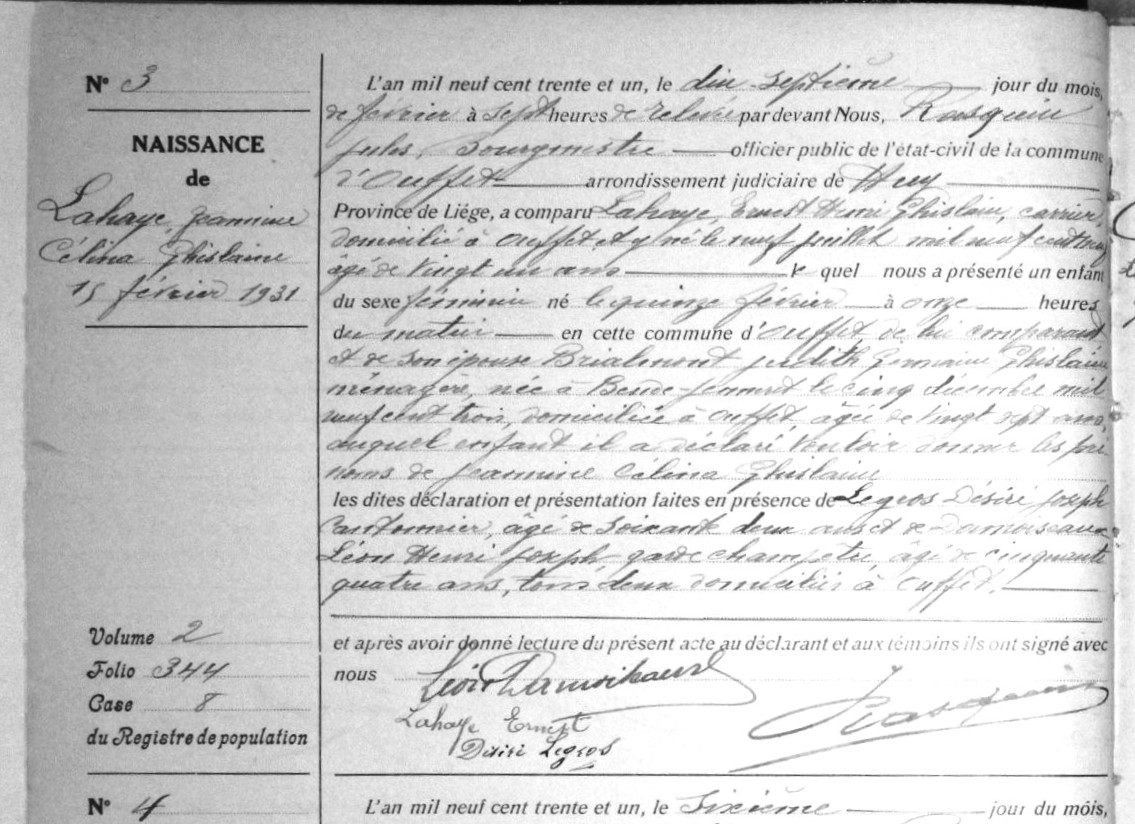 N° 3
NAISSANCE
de
Lahaye, Jeannine
Célina Ghislaine
15 février 1931
L'an mil neuf cent trente et un, le dix septième jour du mois,
de février à sept heures de relevée par devant Nous, Rasquin
Jules, Bourgmestre officier public de l'état-civil de la commune
d'Ouffet arrondissement judiciaire de Huy
Province de Liége, a comparu Lahaye, Ernest Henri Ghislain, carrier,
domicilié à Ouffet et y né le neuf juillet mil neuf cent neuf
âgé de vingt un ans le quel nous a présenté un enfant
du sexe féminin né le quinze février à onze heures
du matin en cette commune d'Ouffet de lui comparant
et de son épouse Brialmont Judith Germaine Ghislaine
ménagère, née à Bende-Jenneret le cinq décembre mil
neuf cent trois, domiciliée à Ouffet, âgée de vingt sept ans,
auquel enfant il a déclaré vouloir donner les pré
noms de Jeannine Célina Ghislaine
les dites déclaration et présentation faites en présence de Legros Désiré Joseph
Cantonnier, âgé de soixante deux ans et de Damoiseaux
Léon Henri Joseph garde champêtre, âgé de cinquante
quatre ans, tous deux domiciliés à Ouffet.
Volume 2
Folio 344
Case 8
du Registre de population
et après avoir donné lecture du présent acte au déclarant et aux témoins ils ont signé avec
nous
Léon Damoiseaux
Rasquin
Lahaye Ernest
Désiré Legros
N° 4
L'an mil neuf cent trente et un, le Sixième jour du mois,